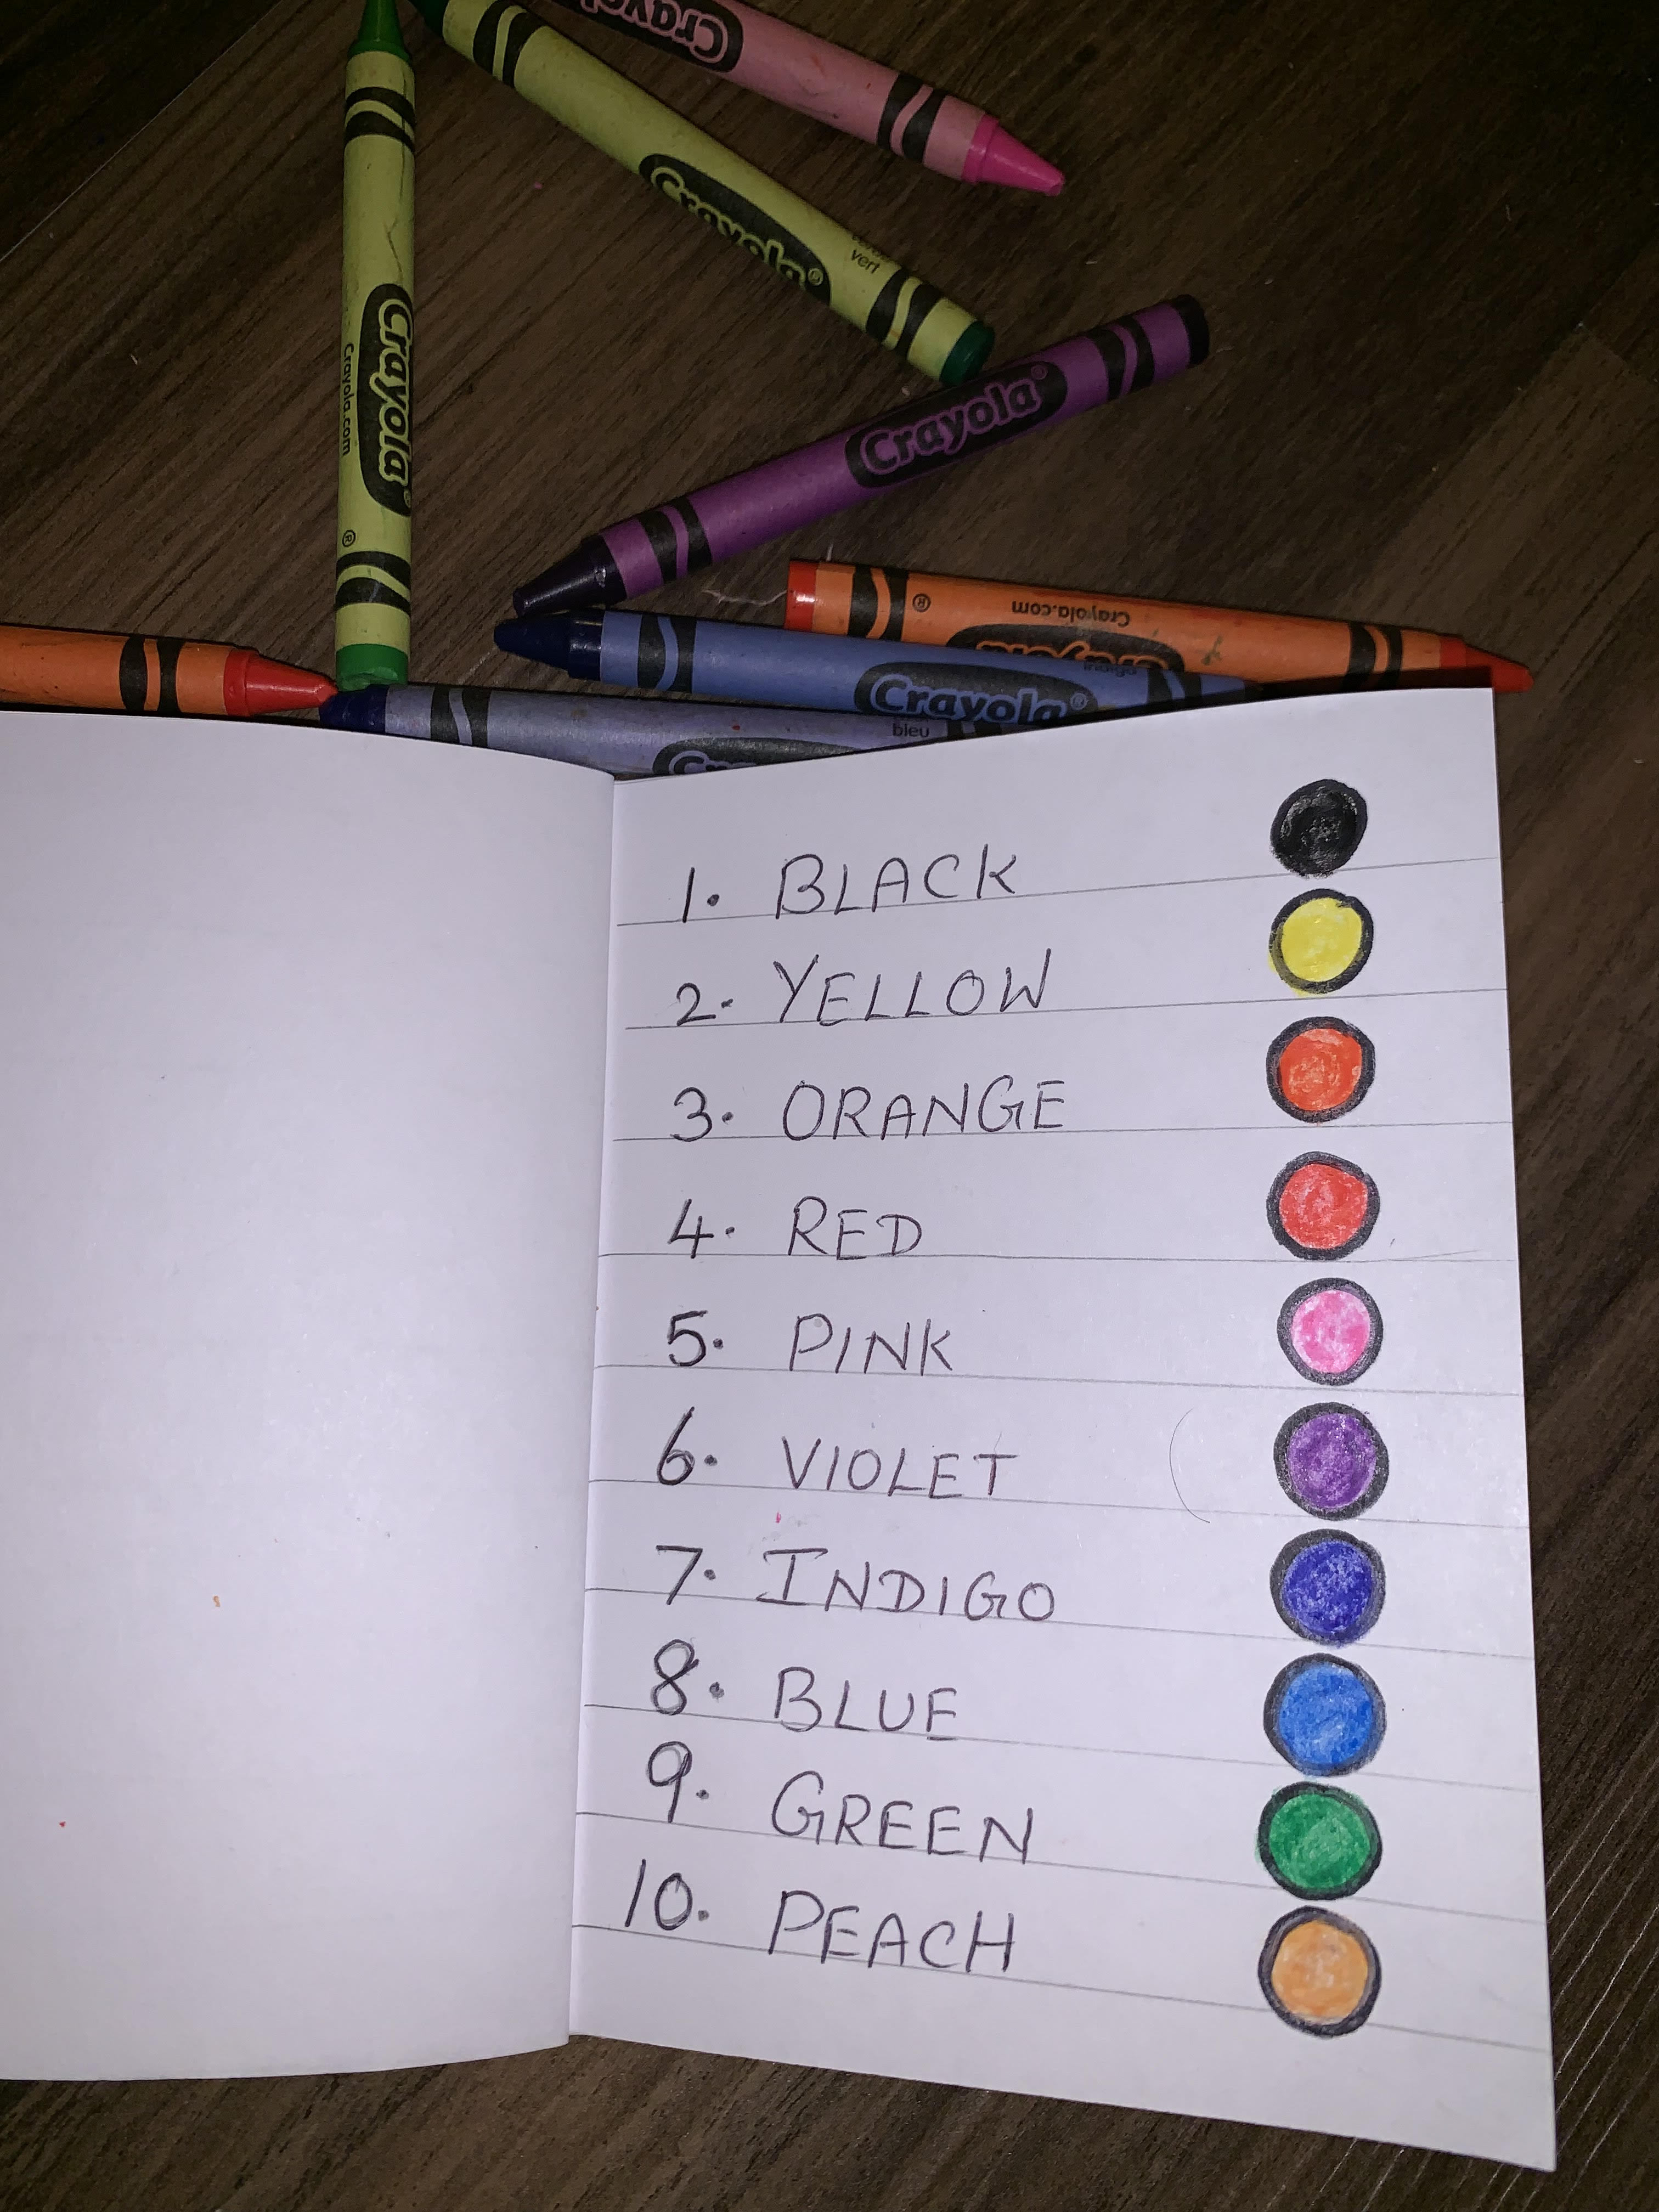 Crayola
Crayola®
vert
Crayola®
Crayola.com
®
Crayola®
®
Crayola.com
Crayola
indigo
Crayola®
bleu
1. BLACK
2. YELLOW
3. ORANGE
4. RED
5. PINK
6. VIOLET
7. INDIGO
8. BLUE
9. GREEN
10. PEACH